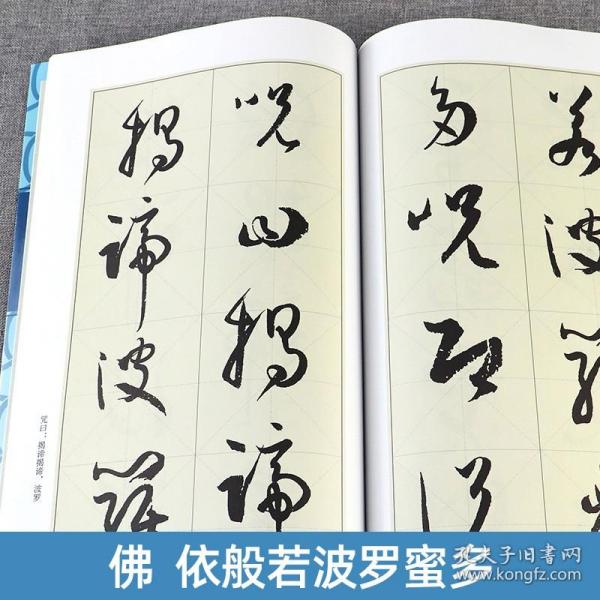 若波羅
多呪即說
呪曰揭諦
揭諦波羅
咒曰：揭谛揭谛，波罗
佛 依般若波罗蜜多
孔夫子旧书网
www.kongfz.com